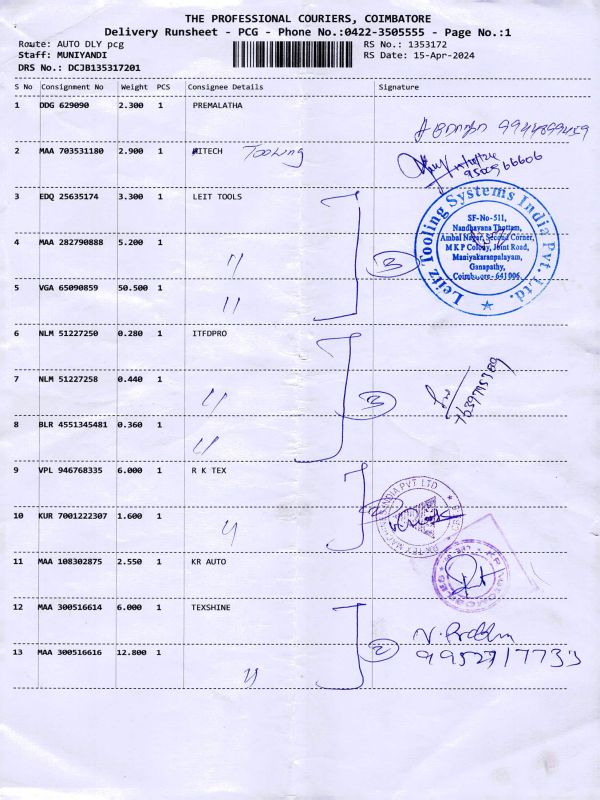 THE PROFESSIONAL COURIERS, COIMBATORE
Delivery Runsheet - PCG - Phone No.:0422-3505555 - Page No.:1
Route: AUTO DLY pcg RS No.: 1353172
Staff: MUNIYANDI RS Date: 15-Apr-2024
DRS No.: DCJB135317201
S No Consignment No Weight PCS Consignee Details Signature
1 DDG 629090 2.300 1 PREMALATHA
2 MAA 703531180 2.900 1 MITECH Tooling
9500566606
3 EDQ 25635174 3.300 1 LEIT TOOLS
4 MAA 282790888 5.200 1 〃
3
5 VGA 65090859 50.500 1 〃
Leitz Tooling Systems India Pvt. Ltd.
SF-No-511,
Nandhavana Thottam,
Ambal Nagar, Second Corner,
M K P Colony, Joint Road,
Maniyakaranpalayam,
Ganapathy,
Coimbatore - 641006.
6 NLM 51227250 0.280 1 ITFDPRO
7 NLM 51227258 0.440 1 〃
3
8 BLR 4551345481 0.360 1 〃
9 VPL 946768335 6.000 1 R K TEX
2
10 KUR 7001222307 1.600 1 〃
11 MAA 108302875 2.550 1 KR AUTO
12 MAA 300516614 6.000 1 TEXSHINE
2
13 MAA 300516616 12.800 1 〃
9952717733